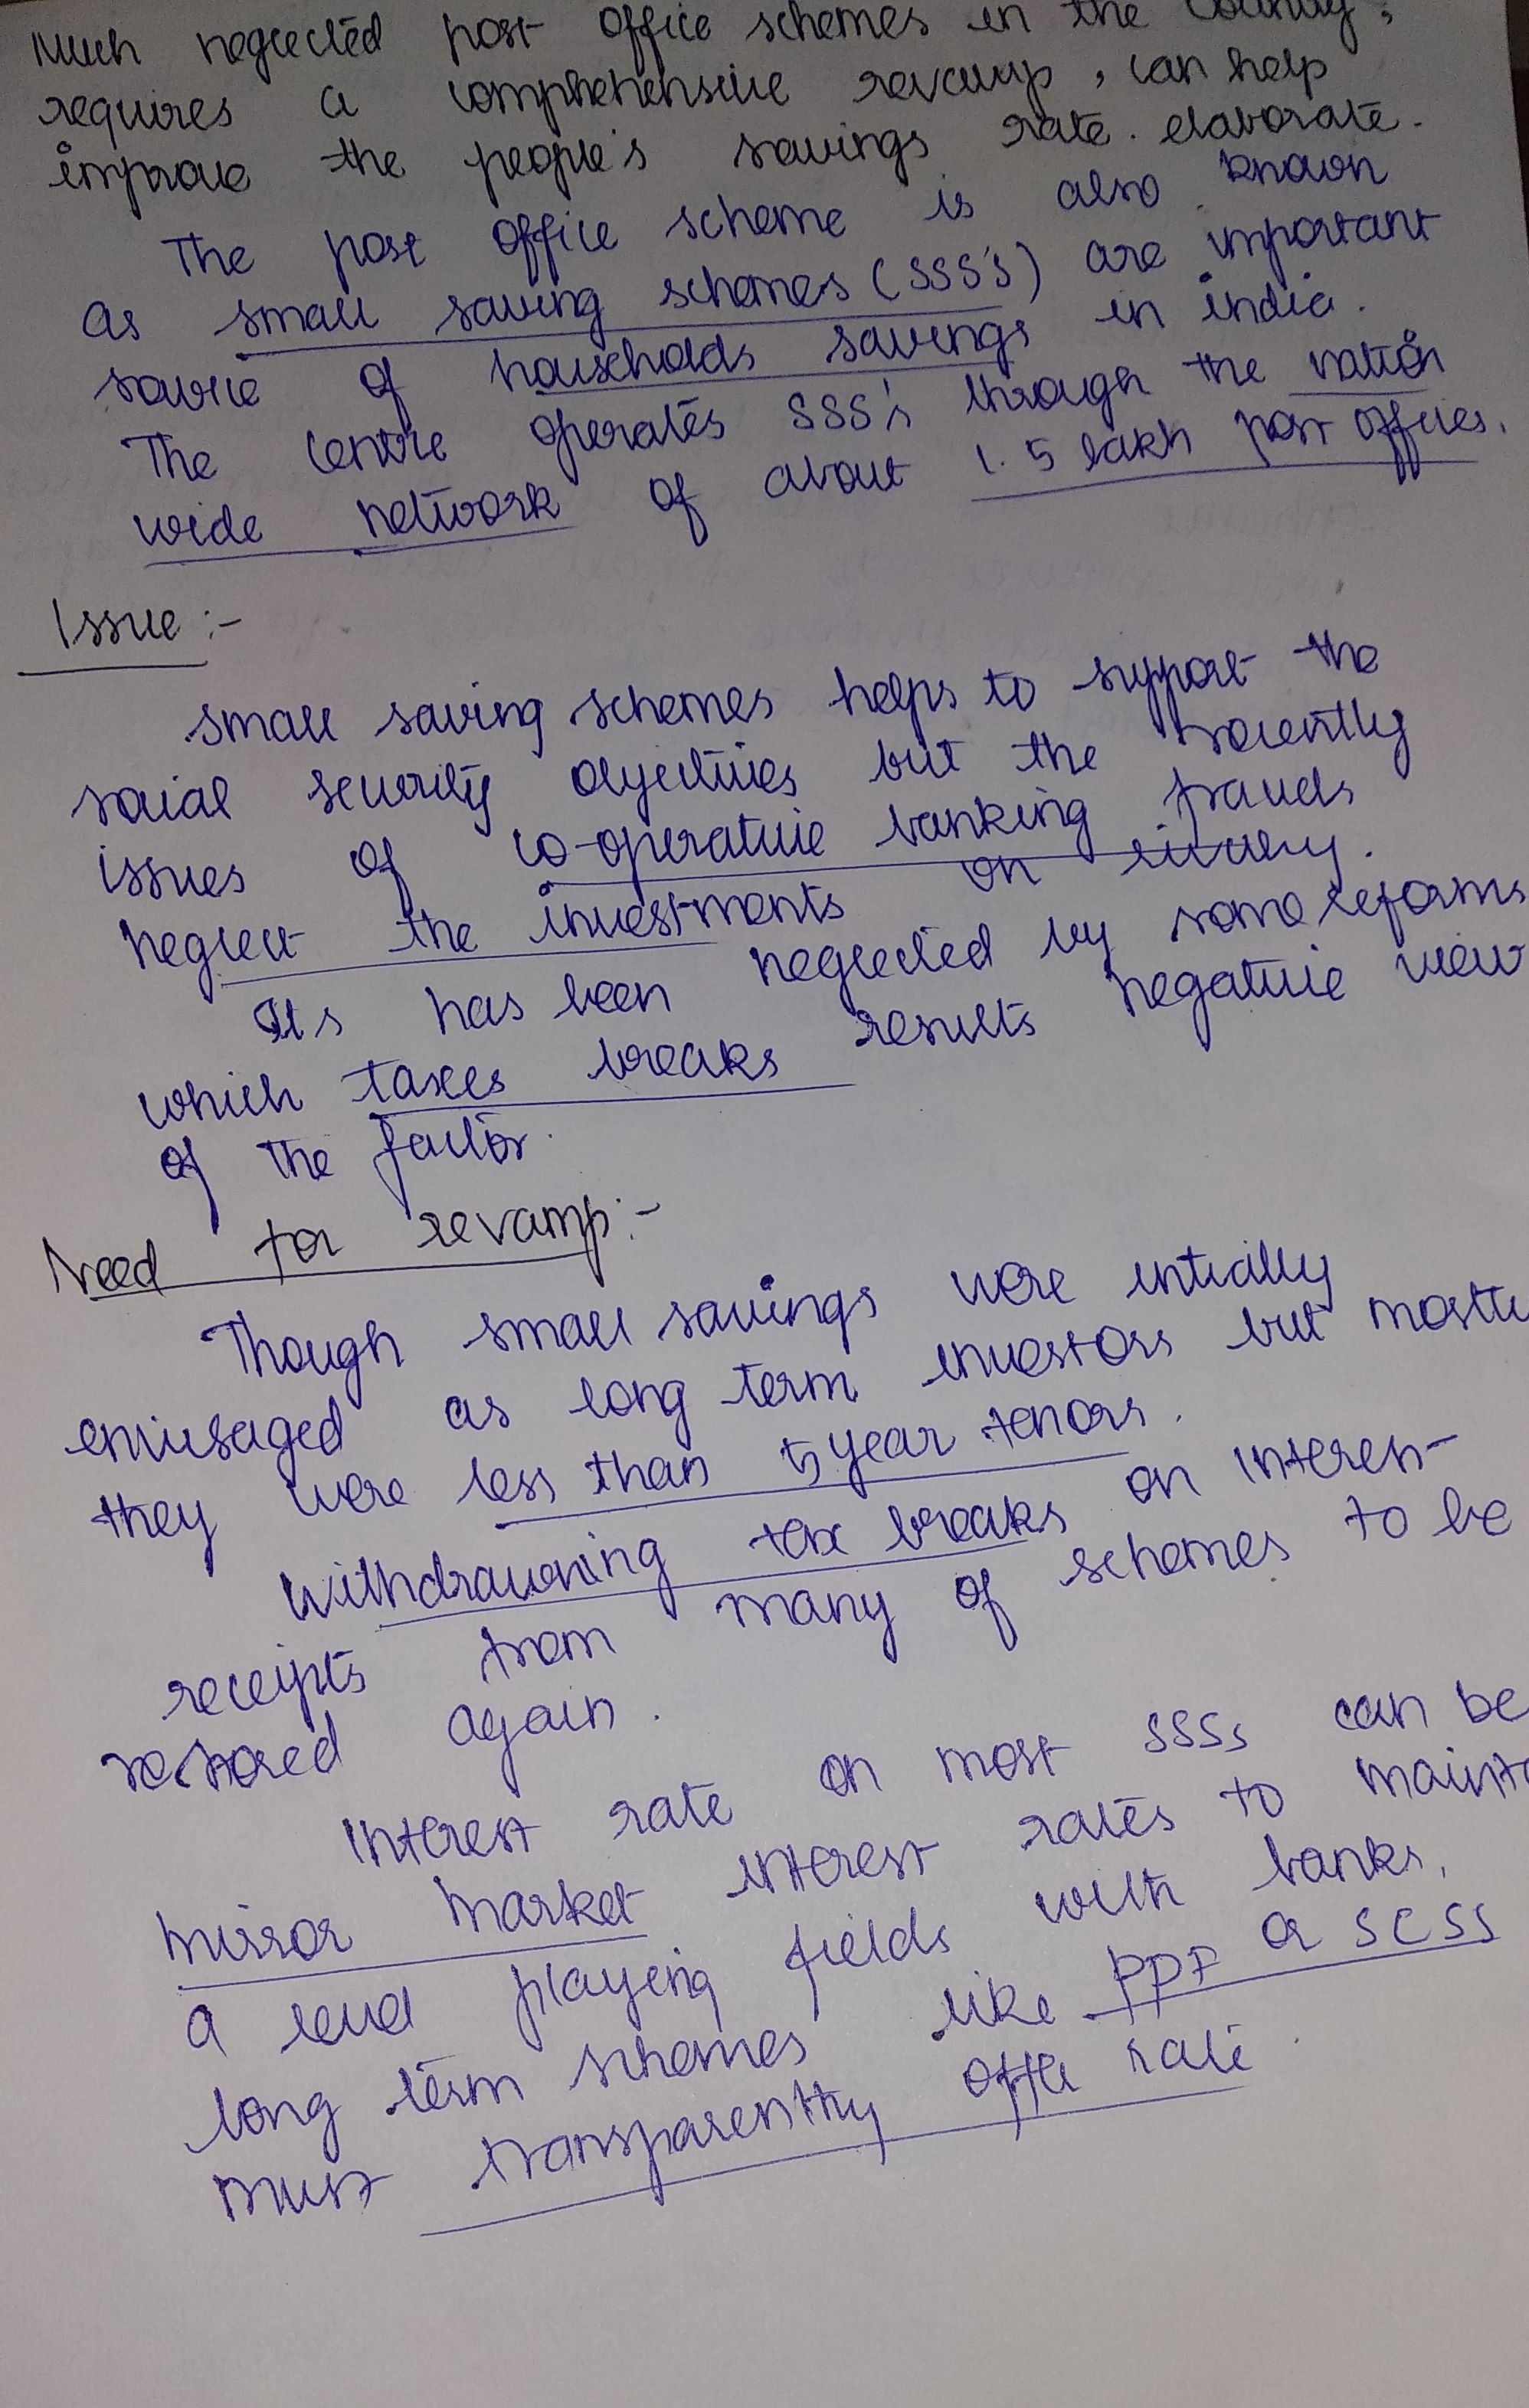 Much neglected post office schemes in the country,
requires a comprehensive revamp, can help
improve the people's savings rate. elaborate.
The post office scheme is also known
as small saving schemes (SSS's) are important
source of households savings in india.
The centre operates SSS's through the nation
wide network of about 1.5 lakh post offices.
Issue :-
small saving schemes helps to support the
social security objectives but the recently
issues of co-operative banking frauds
neglect the investments on
Its has been neglected by some reforms
which taxes breaks results negative view
of the factor.
Need for revamp :-
Though small savings were intially
envisaged as long term investors but mostly
they were less than 5 year tenors.
Withdrawning tax breaks on interest
receipts from many of schemes to be
restored again.
Interest rate on most SSSs can be
mirror market interest rates to
a level playing fields with banks,
long term schemes like PPF or SCSS
must transparenttly offer rate.